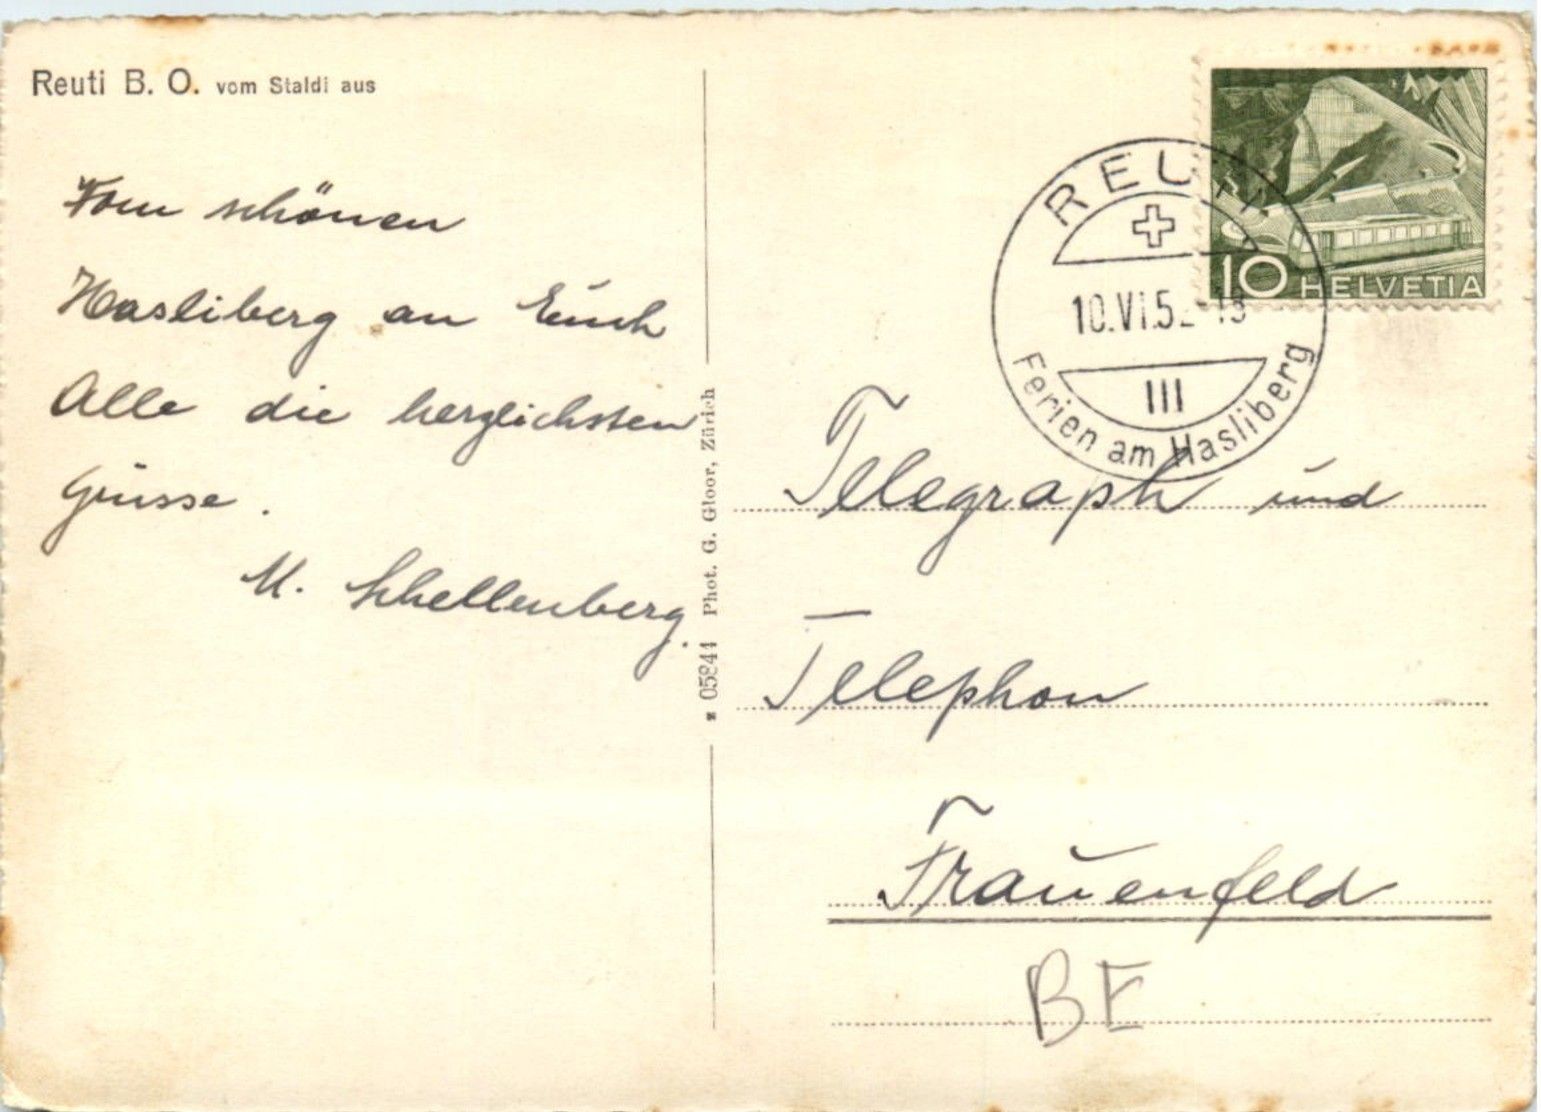 Reuti B. O. vom Staldi aus
Vom schönen
Hasliberg an Euch
Alle die herzlichsten
Grüsse.
M. Schellenberg.
Phot. G. Gloor, Zürich
REUTI
10.VI.5
III
Ferien am Hasliberg
10 HELVETIA
Telegraph und
Telephon
Frauenfeld
BE